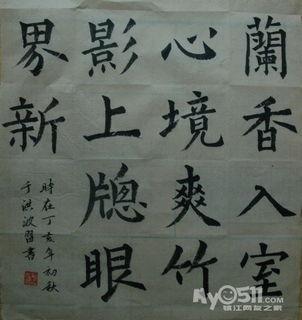 蘭香入室
心境爽竹
影上牕眼
界新
時在丁亥年初秋
于洪波習書
my0511.com
镇江网友之家